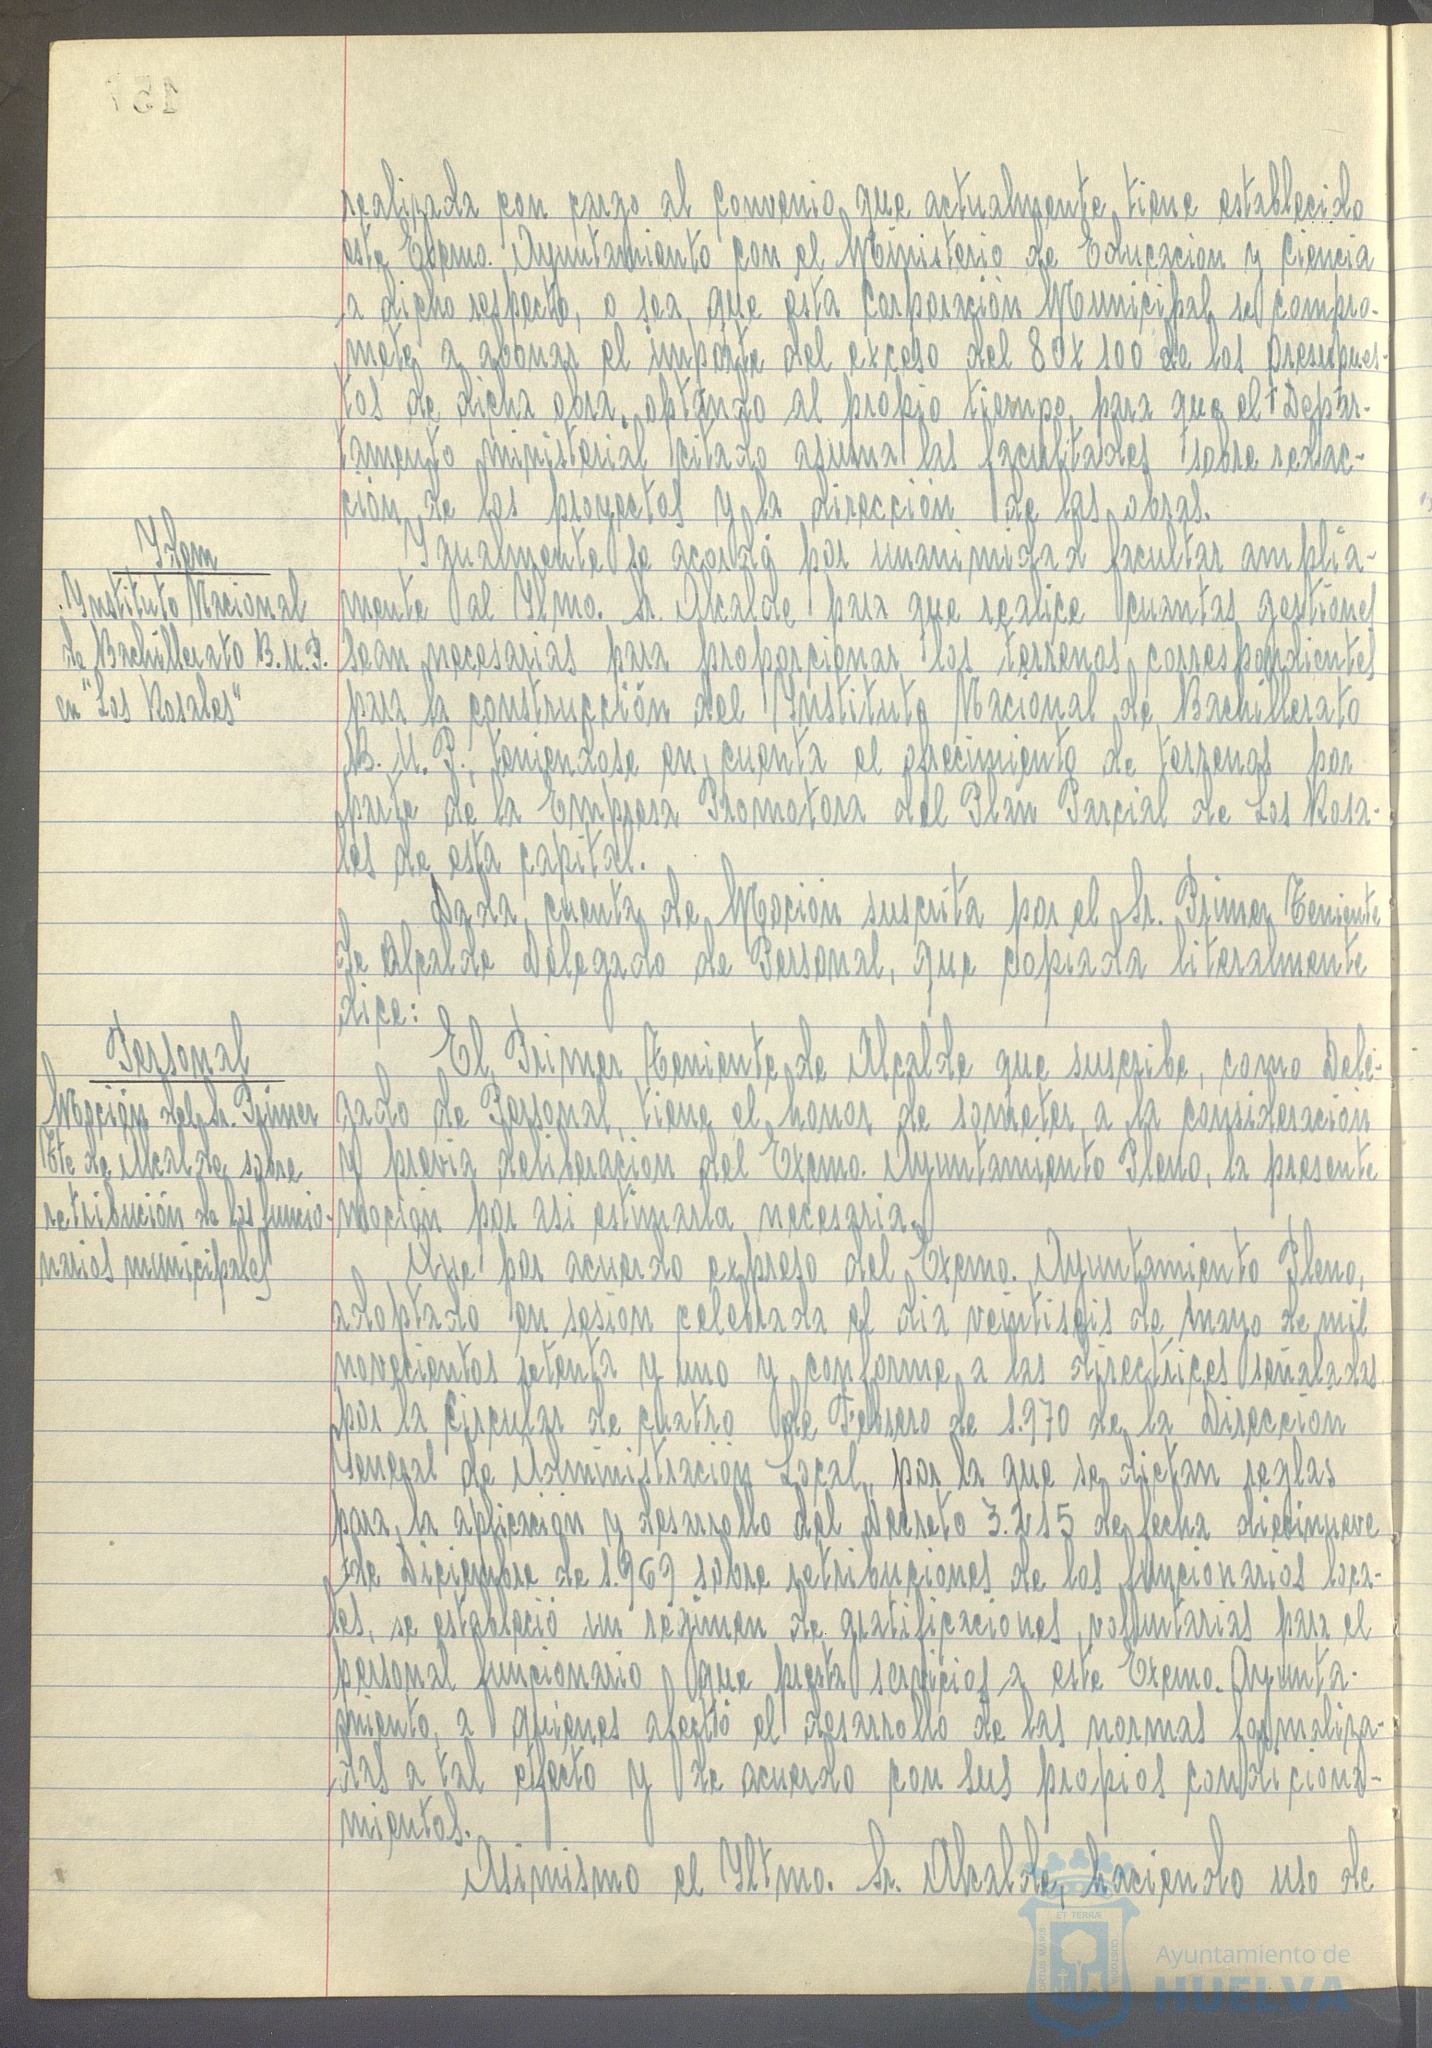 157
realizada con cargo al convenio que actualmente tiene establecido
este Excmo. Ayuntamiento con el Ministerio de Educación y Ciencia
a dicho respecto, o sea, que esta Corporación Municipal se compro-
mete a abonar el importe del exceso del 80% 100 de los presupues-
tos de dicha obra, optando al propio tiempo para que el Depar-
tamento ministerial citado asuma las facultades sobre redac-
ción de los proyectos y la dirección de las obras.
Idem
Instituto Nacional
de Bachillerato B.U.P.
en "Los Rosales"
Igualmente se acordó por unanimidad facultar amplia-
mente al Ilmo. Sr. Alcalde para que realice cuantas gestiones
sean necesarias para proporcionar los terrenos correspondientes
para la construcción del Instituto Nacional de Bachillerato
B.U.P., teniendose en cuenta el ofrecimiento de terrenos por
parte de la Empresa Promotora del Plan Parcial de Los Rosa-
les de esta capital.
Dada cuenta de Moción suscrita por el Sr. Primer Teniente
de Alcalde Delegado de Personal, que copiada literalmente
dice:
Personal
Moción del Sr. Primer
Tte de Alcalde sobre
retribución de los funcio-
narios municipales
El Primer Teniente de Alcalde que suscribe, como Dele-
gado de Personal, tiene el honor de someter a la consideración
y previa deliberación del Excmo. Ayuntamiento Pleno, la presente
moción por asi estimarla necesaria.
Que por acuerdo expreso del Excmo. Ayuntamiento Pleno,
adoptado en sesión celebrada el dia veintiseis de mayo de mil
novecientos setenta y uno y conforme a las directrices señaladas
por la Circular de cuatro de Febrero de 1.970 de la Dirección
General de Administración Local, por la que se dictan reglas
para la aplicación y desarrollo del Decreto 3.215 de fecha diecinueve
de Diciembre de 1.969 sobre retribuciones de los funcionarios loca-
les, se estableció un regimen de gratificaciones voluntarias para el
personal funcionario que presta servicios a este Excmo. Ayunta-
miento, a quienes afectó el desarrollo de las normas formaliza-
das a tal efecto y de acuerdo con sus propios condiciona-
mientos.
Asimismo el Iltmo. Sr. Alcalde, haciendo uso de
ET TERRÆ
PORTUS MARIS
CUSTODIA
Ayuntamiento de
HUELVA